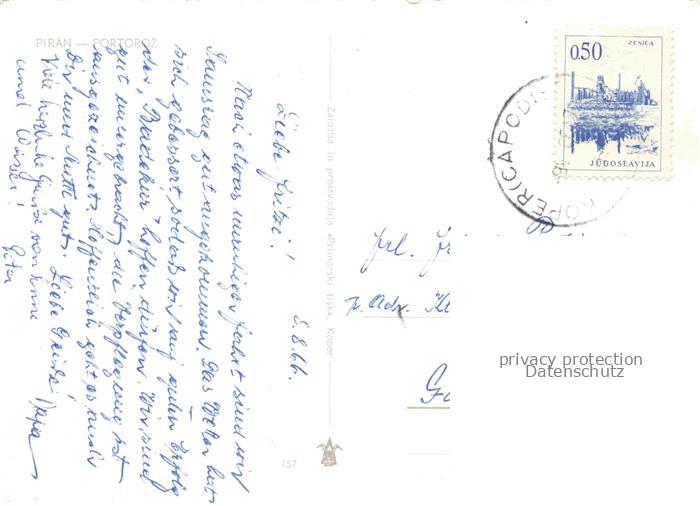 PIRAN — PORTOROŽ
8.8.66.
Liebe Gitti!
Nach etwas unruhiger Fahrt sind wir
Samstag gut angekommen. Das Wetter hat
sich gebessert, sodaß wir auf guten Erfolg
der "Badekur" hoffen dürfen. Wir sind
gut untergebracht, die Verpflegung ist
ausgezeichnet. Hoffentlich geht es auch
Dir und Mutti gut. Liebe Grüße! Papa
Viele herzliche Grüße von Anne
und Wisser!
Peter
Založba in proizvodnja »Primorski tisk«, Koper
157
0.50
ZENICA
JUGOSLAVIJA
KOPER(CAPODIS
Frl.
p. Adr. Kl
G
privacy protection
Datenschutz